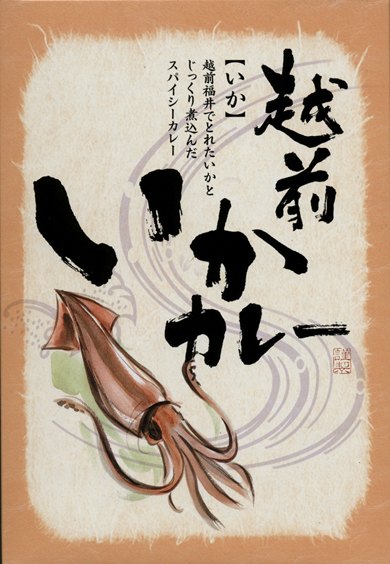 越前
いか
カレー
【いか】
越前福井でとれたいかと
じっくり煮込んだ
スパイシーカレー
謹製